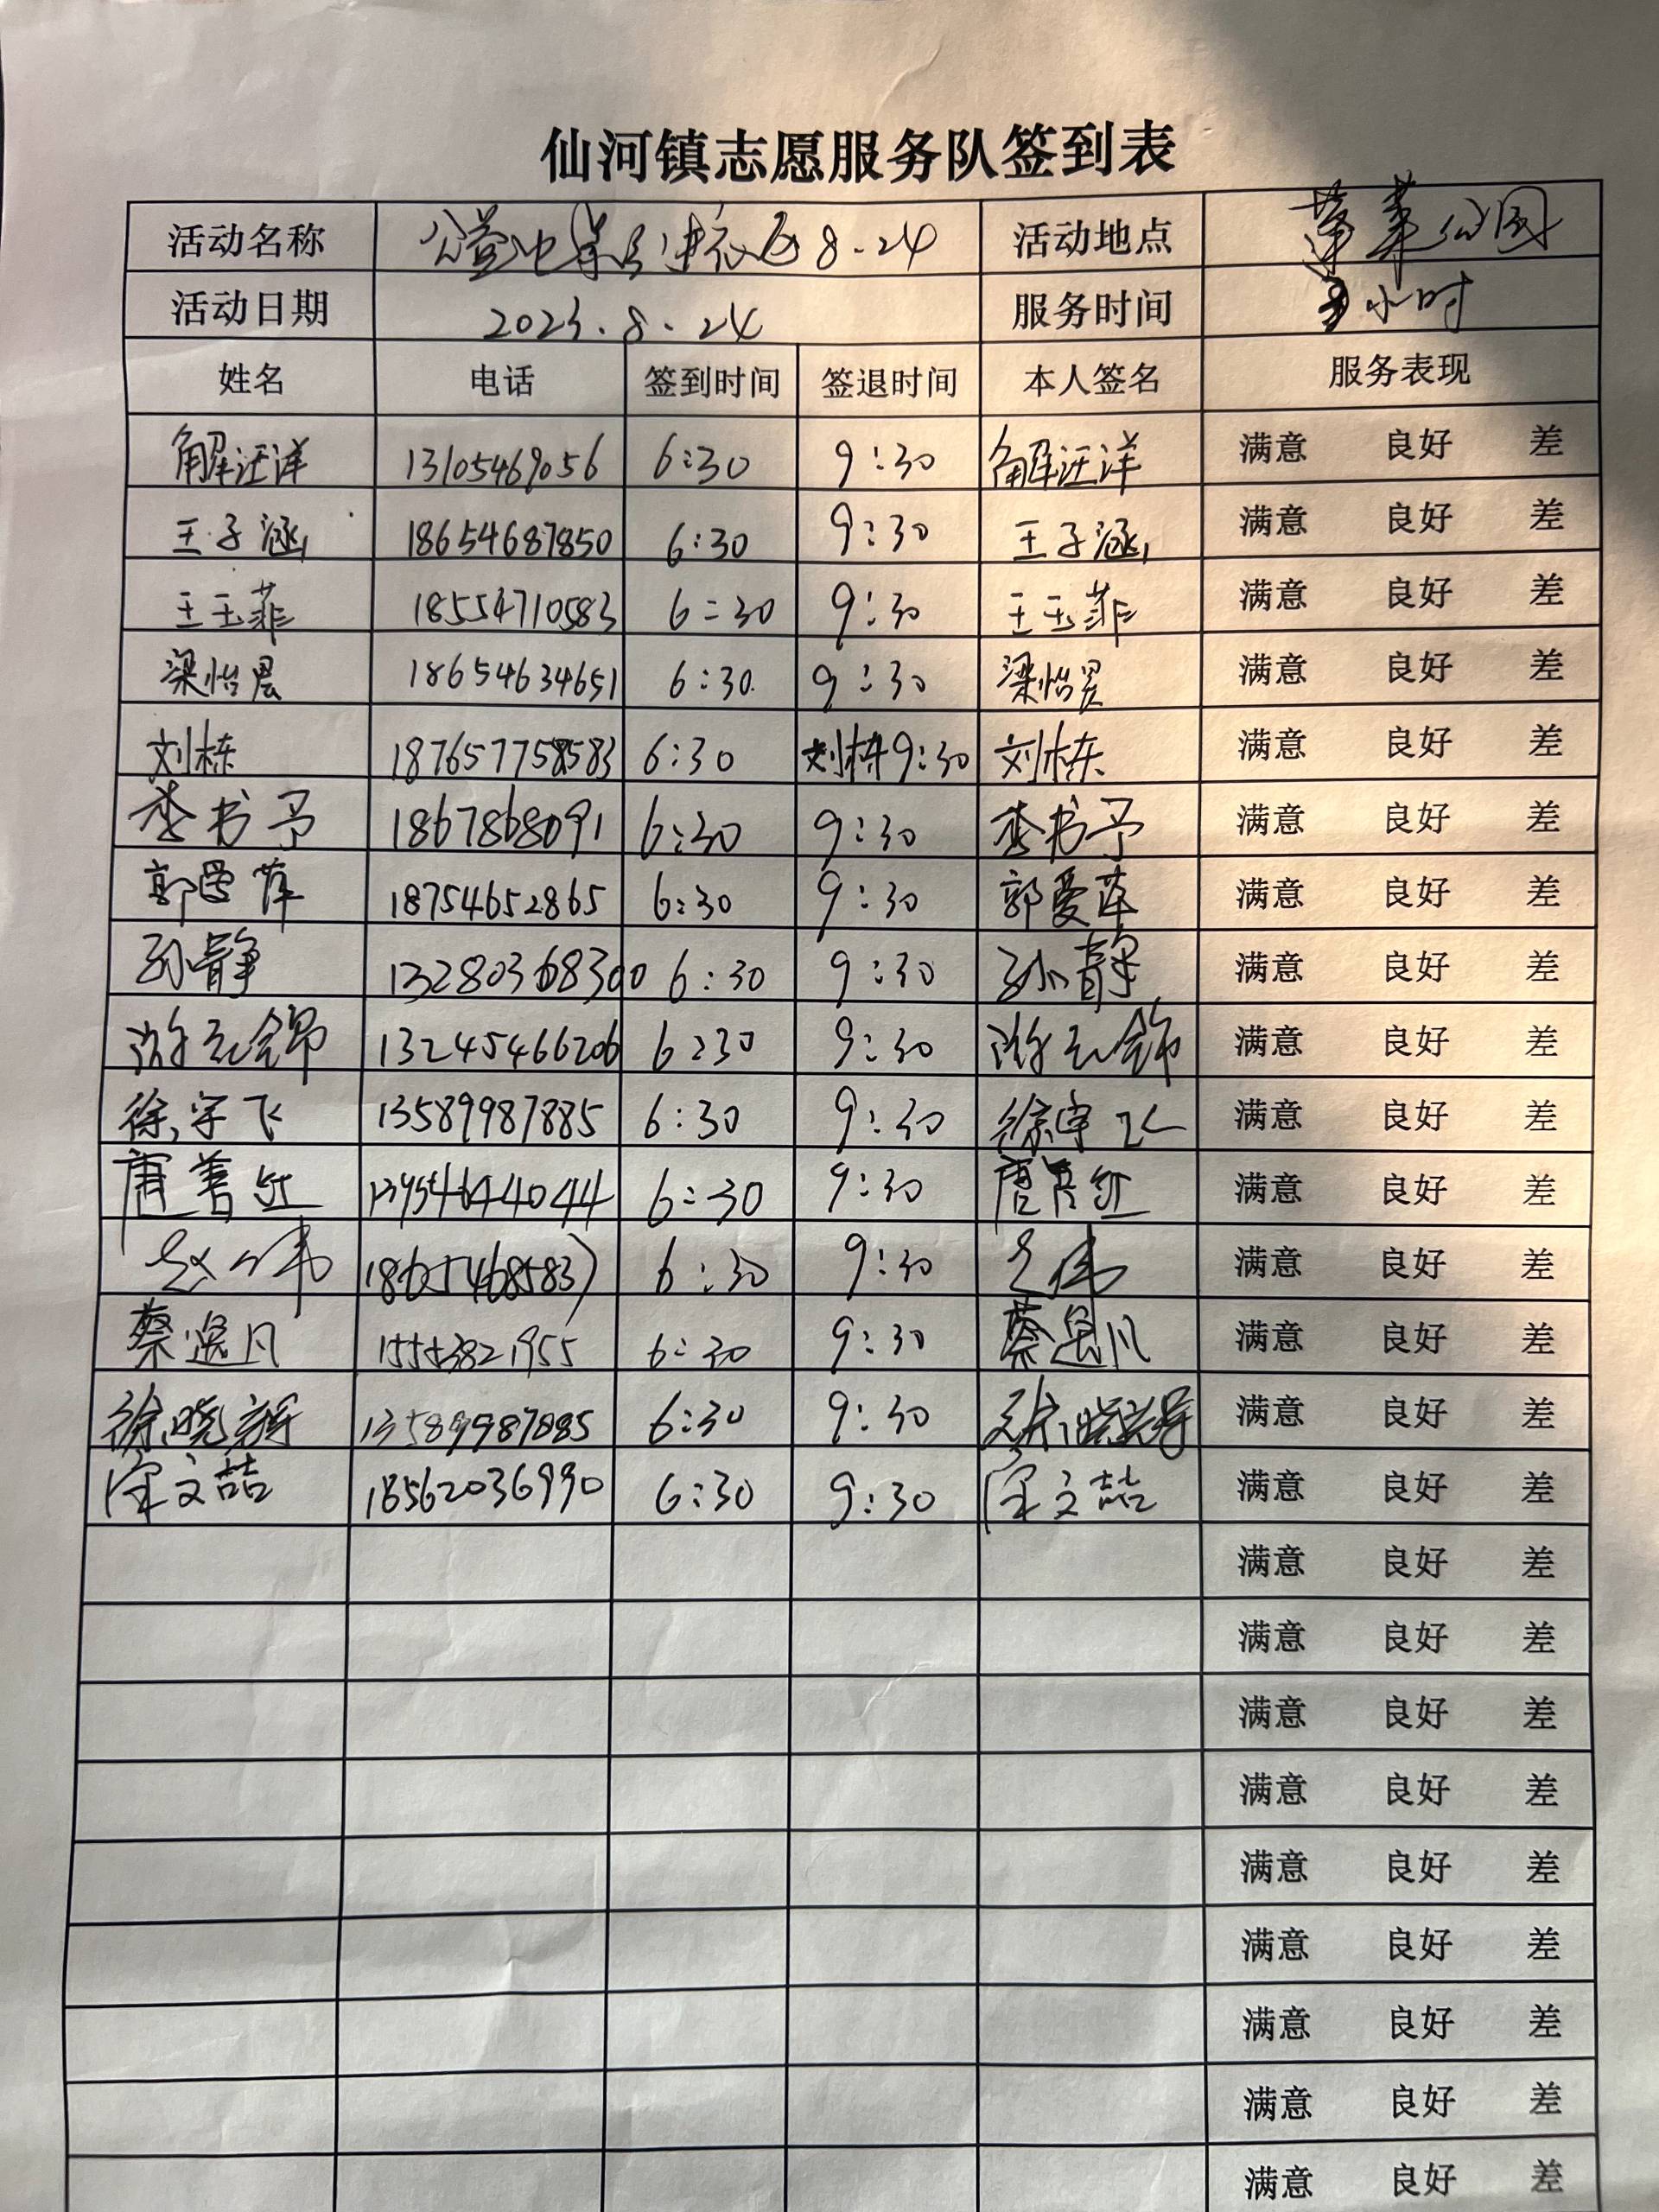 仙河镇志愿服务队签到表
活动名称 公益 进社区 8.24 活动地点 蓬莱公园
活动日期 2023.8.24 服务时间 3小时
姓名 电话 签到时间 签退时间 本人签名 服务表现
解汪洋 13105469056 6:30 9:30 解汪洋 满意 良好 差
王子涵 18654687850 6:30 9:30 王子涵 满意 良好 差
王玉菲 18554710583 6:30 9:30 王玉菲 满意 良好 差
梁怡晨 18654634651 6:30 9:30 梁怡晨 满意 良好 差
刘栋 6:30 9:30 刘栋 满意 良好 差
李书予 1867868091 6:30 9:30 李书予 满意 良好 差
郭爱萍 18754652865 6:30 9:30 郭爱萍 满意 良好 差
孙静 13280368300 6:30 9:30 孙静 满意 良好 差
13245466206 6:30 9:30 满意 良好 差
徐宇飞 13589987885 6:30 9:30 徐宇飞 满意 良好 差
唐善红 13954644044 6:30 9:30 唐善红 满意 良好 差
赵伟 18654685837 6:30 9:30 赵伟 满意 良好 差
蔡逸凡 6:30 9:30 蔡逸凡 满意 良好 差
徐晓辉 13589987885 6:30 9:30 徐晓辉 满意 良好 差
宋文喆 18562036990 6:30 9:30 宋文喆 满意 良好 差
满意 良好 差
满意 良好 差
满意 良好 差
满意 良好 差
满意 良好 差
满意 良好 差
满意 良好 差
满意 良好 差
满意 良好 差